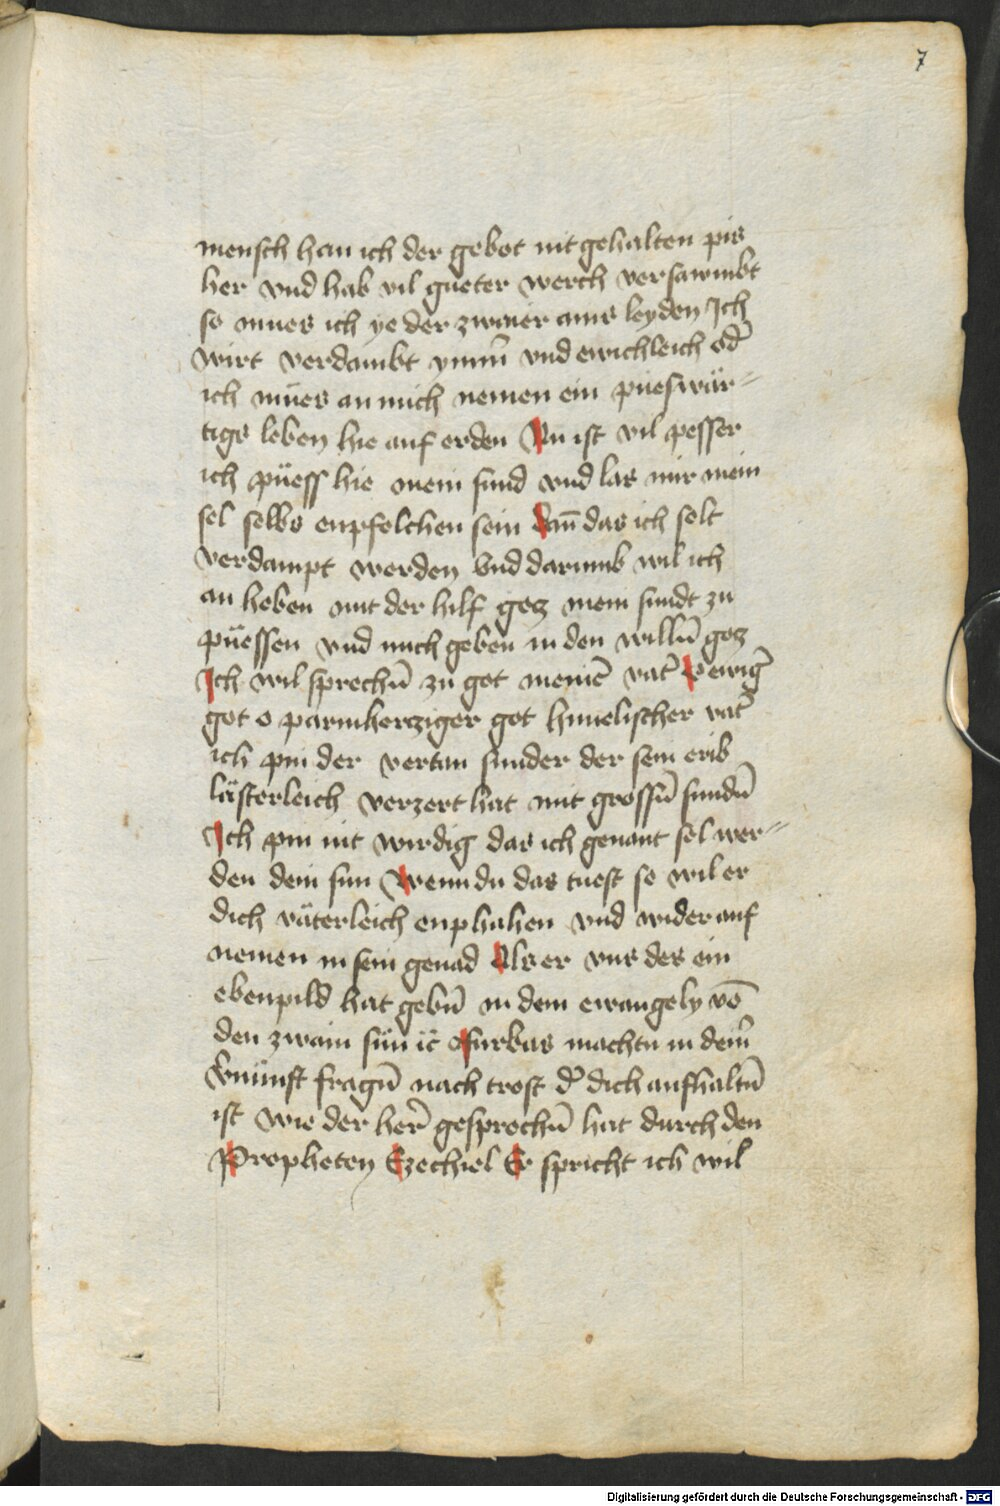 7
mensch han ich der gebot nit gehalten pis
her vnd hab vil gueter werch versawmbt
so mues ich ye der zwaier ains leyden Ich
wirt verdambt ym̄n̄ vnd ewichleich od̄
ich mües an mich nemen ein pueswär-
tigs leben hie auf erden Nu ist vil pesser
ich püess hie mein sund vnd las mir mein
sel selbs enpfolchen sein dan̄ das ich solt
verdampt werden vnd darumb wil ich
an heben mit der hilf gotz mein sundt zu
püessen vnd mich geben in den willn̄ gotz
Ich wil sprechn̄ zu got meinē vat̄ O ewiḡ
got o parmhercziger got himelischer vat̄
ich pin der vertan sunder der sein erib
lästerleich verzert hat mit grossn̄ sundn̄
Ich pin nit wirdig das ich genant sol wer-
den dein sun Wenn du das tuest so wil er
dich väterleich enphahen vnd wider auf
nemen in sein genad Als er vns des ein
ebenpild hat gebn̄ in dem ewangely vō
den zwain sün ꝛc̄ furbas machtu in dein̄
v̄nünft fragn̄ nach trost d̄ dich aufhaltn̄
ist wie der her̄ gesprochn̄ hat durch den
Propheten Ezechiel Er spricht ich wil
Digitalisierung gefördert durch die Deutsche Forschungsgemeinschaft - DFG